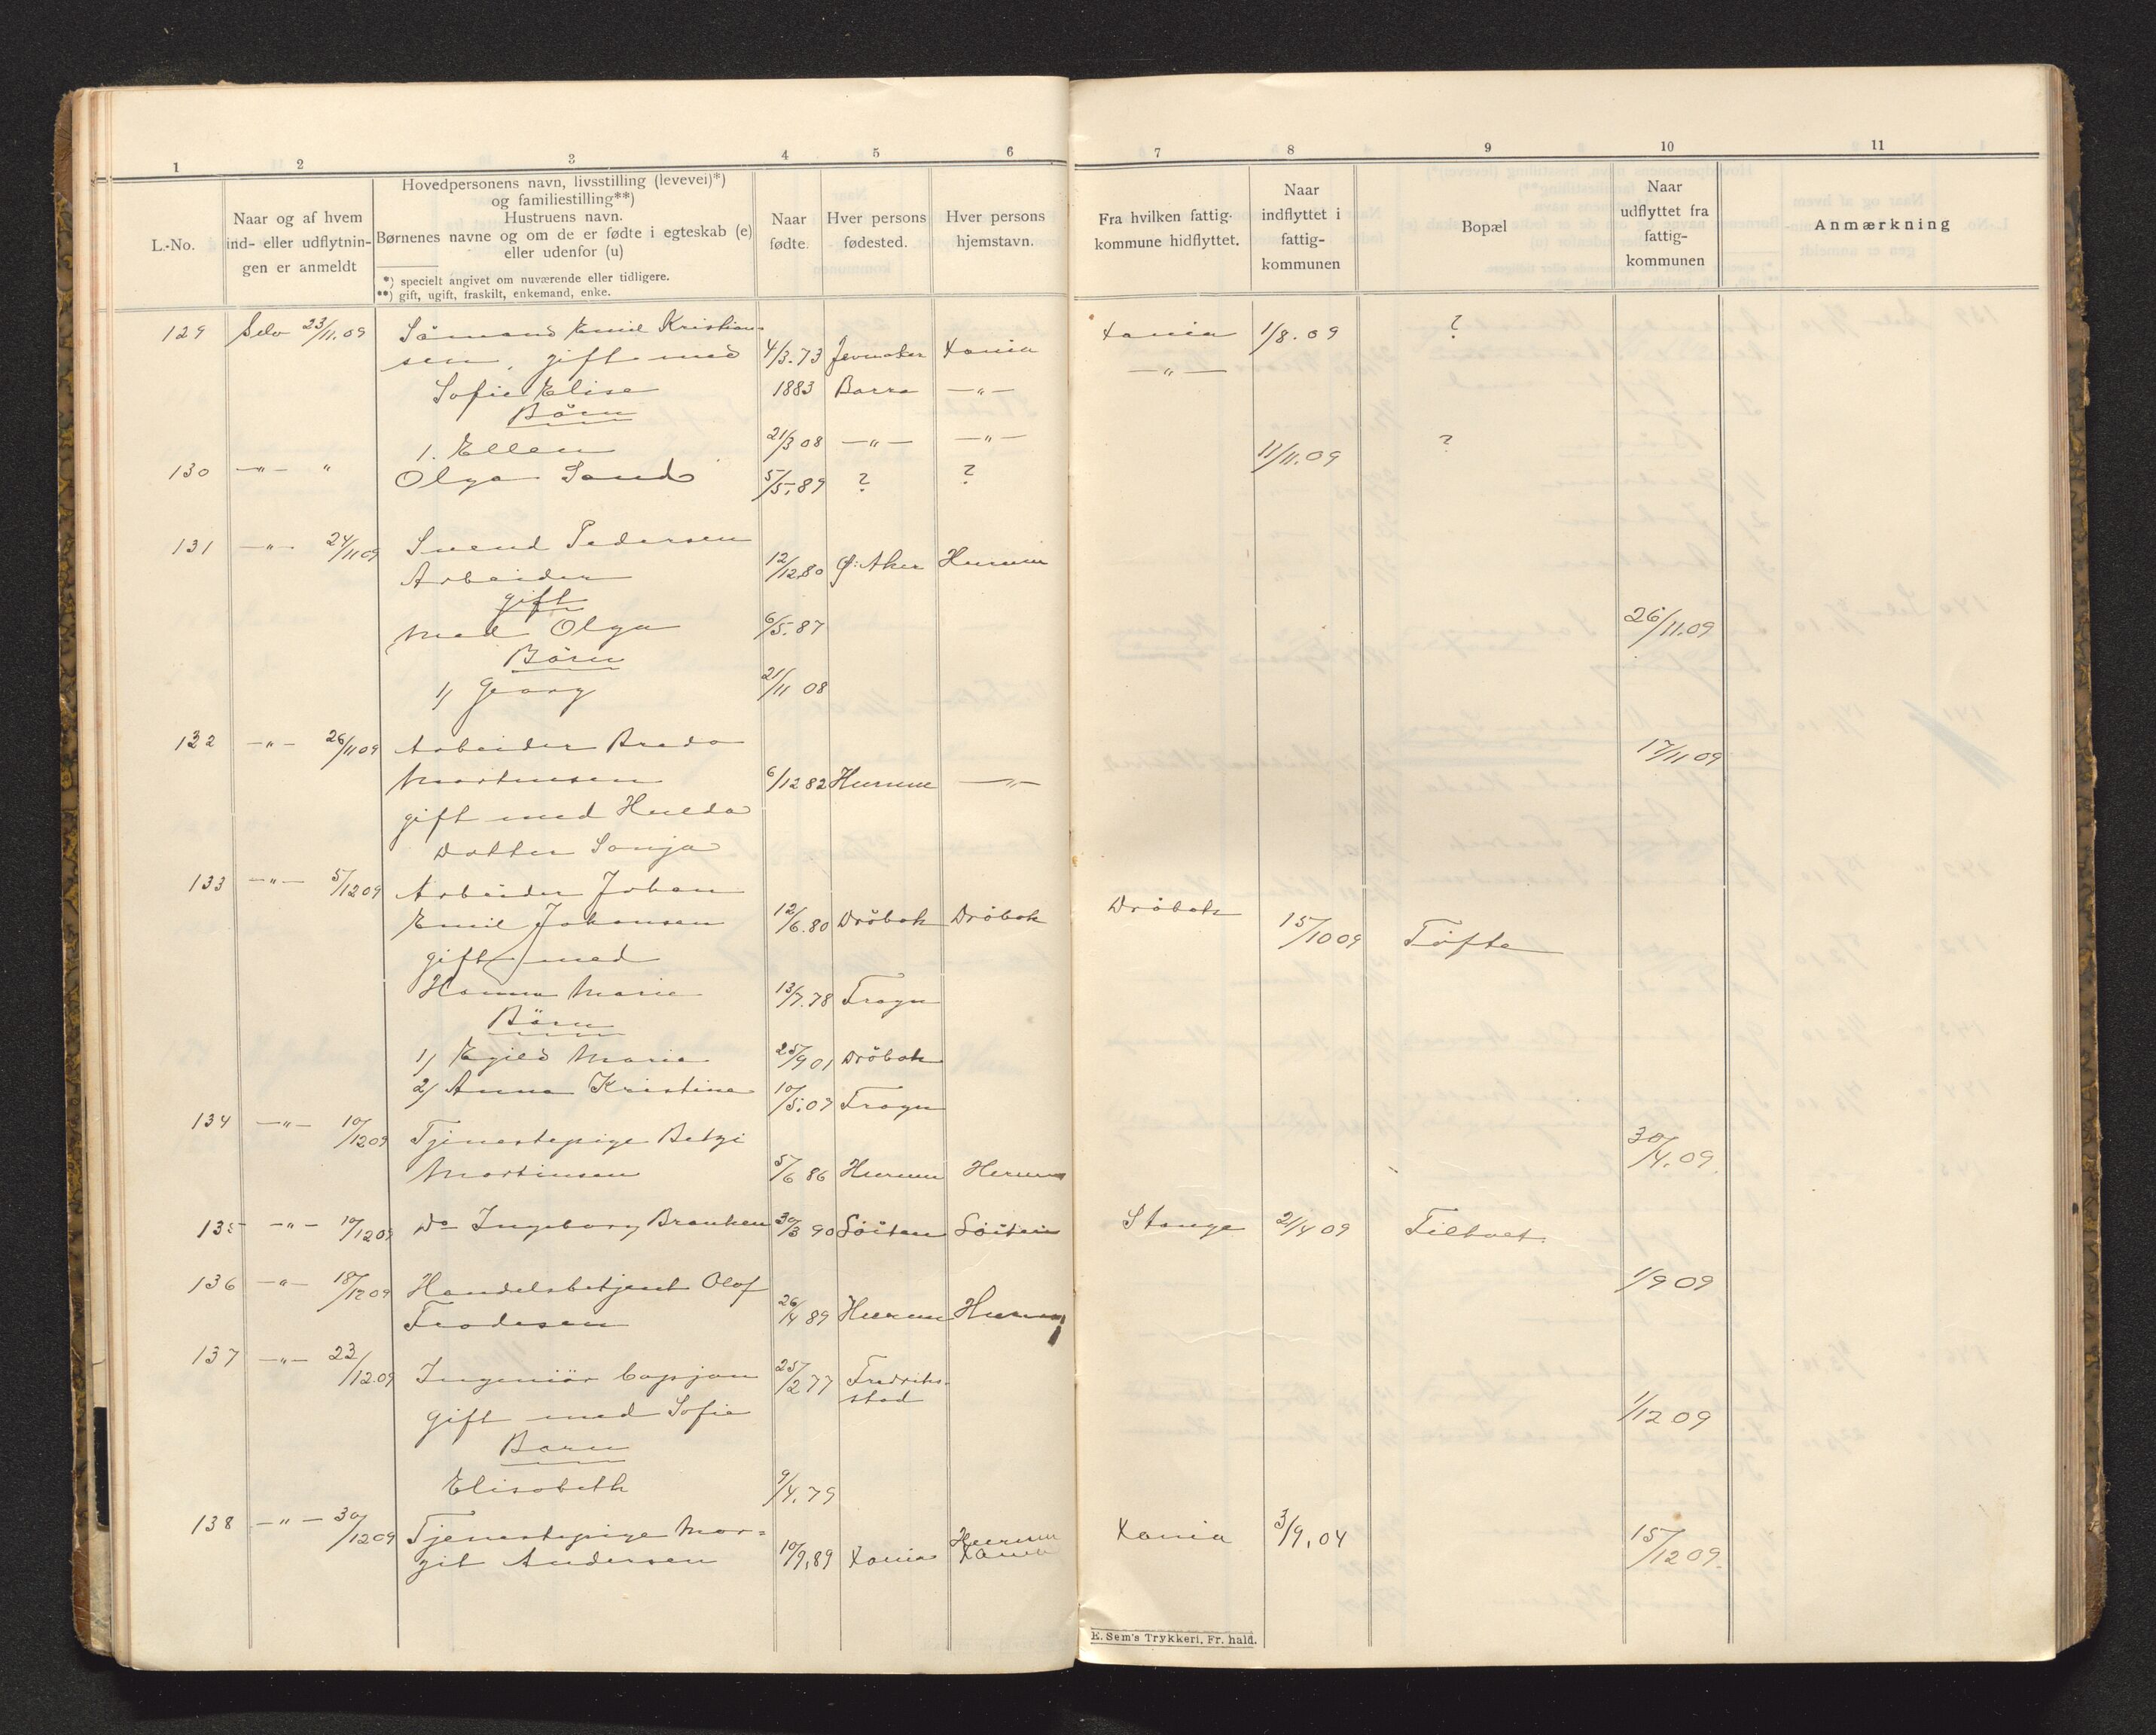 1 2 3 4 5 6 7 8 9 10 11
L.-No.
Naar og af hvem
ind- eller udflytnin-
gen er anmeldt
Hovedpersonens navn, livsstilling (levevei)*)
og familiestilling**)
Hustruens navn.
Børnenes navne og om de er fødte i egteskab (e)
eller udenfor (u)
*) specielt angivet om nuværende eller tidligere.
**) gift, ugift, fraskilt, enkemand, enke.
Naar
fødte.
Hver persons
fødested.
Hver persons
hjemstavn.
Fra hvilken fattig-
kommune hidflyttet.
Naar
indflyttet i
fattig-
kommunen
Bopæl
Naar
udflyttet fra
fattig-
kommunen
Anmærkning
129 Selv 23/11.09 Sömand Emil Kristian- Xania 1/8.09 ?
sen, gift med 4/3.73 Jevnaker Xania —"—
Sofie Elise 1883 Borre —"—
Börn
1. Ellen 21/3 08 —"— —"—
130 —"— " Olga Sand 5/5.89 ? ? 11/11.09 ?
131 —"— 24/11 09 Svend Pedersen
Arbeider 12/12.80 Ø: Aker Hurum
gift
med Olga 6/5.87 26/11.09
Börn
1/ Georg 21/11 08
132 —"— 26/11 09 Arbeider Bredo 17/11 09
Mortensen 6/12 82 Hurum —"—
gift med Hulda
Datter Sonja
133 —"— 5/12 09 Arbeider Johan
Emil Johansen 12/6.80 Dröbak Dröbak Dröbak 15/10 09 Tofte
gift med
Hanna Marie 13/7.78 Frogn
Börn
1/ Egild Marie 25/9 01 Dröbak
2/ Anna Kristine 10/5.07 Frogn
134 —"— 10/12 09 Tjenestepige Betzi 30/4.09.
Martinsen 5/6 86 Hurum Hurum
135 —"— 10/12 09 Do Ingeborg Brenken 30/3 90 Löiten Löiten Stange 21/4 09 Filtvet.
136 —"— 18/12 09 Handelsbetjent Olaf 1/9 09
Frodesen 26/4 89 Hurum Hurum
137 —"— 23/12.09 Ingeniör Capjon 25/2 77 Fredriks-
stad
gift med Sofie 1/12 09
Barn
Elisabeth 9/4.79
138 —"— 30/12 09 Tjenestepige Mar= Hurum Xania 3/9.04 15/12 09.
git Andersen 10/9.89 Xania Xania
E. Sem's Trykkeri, Fr. hald.